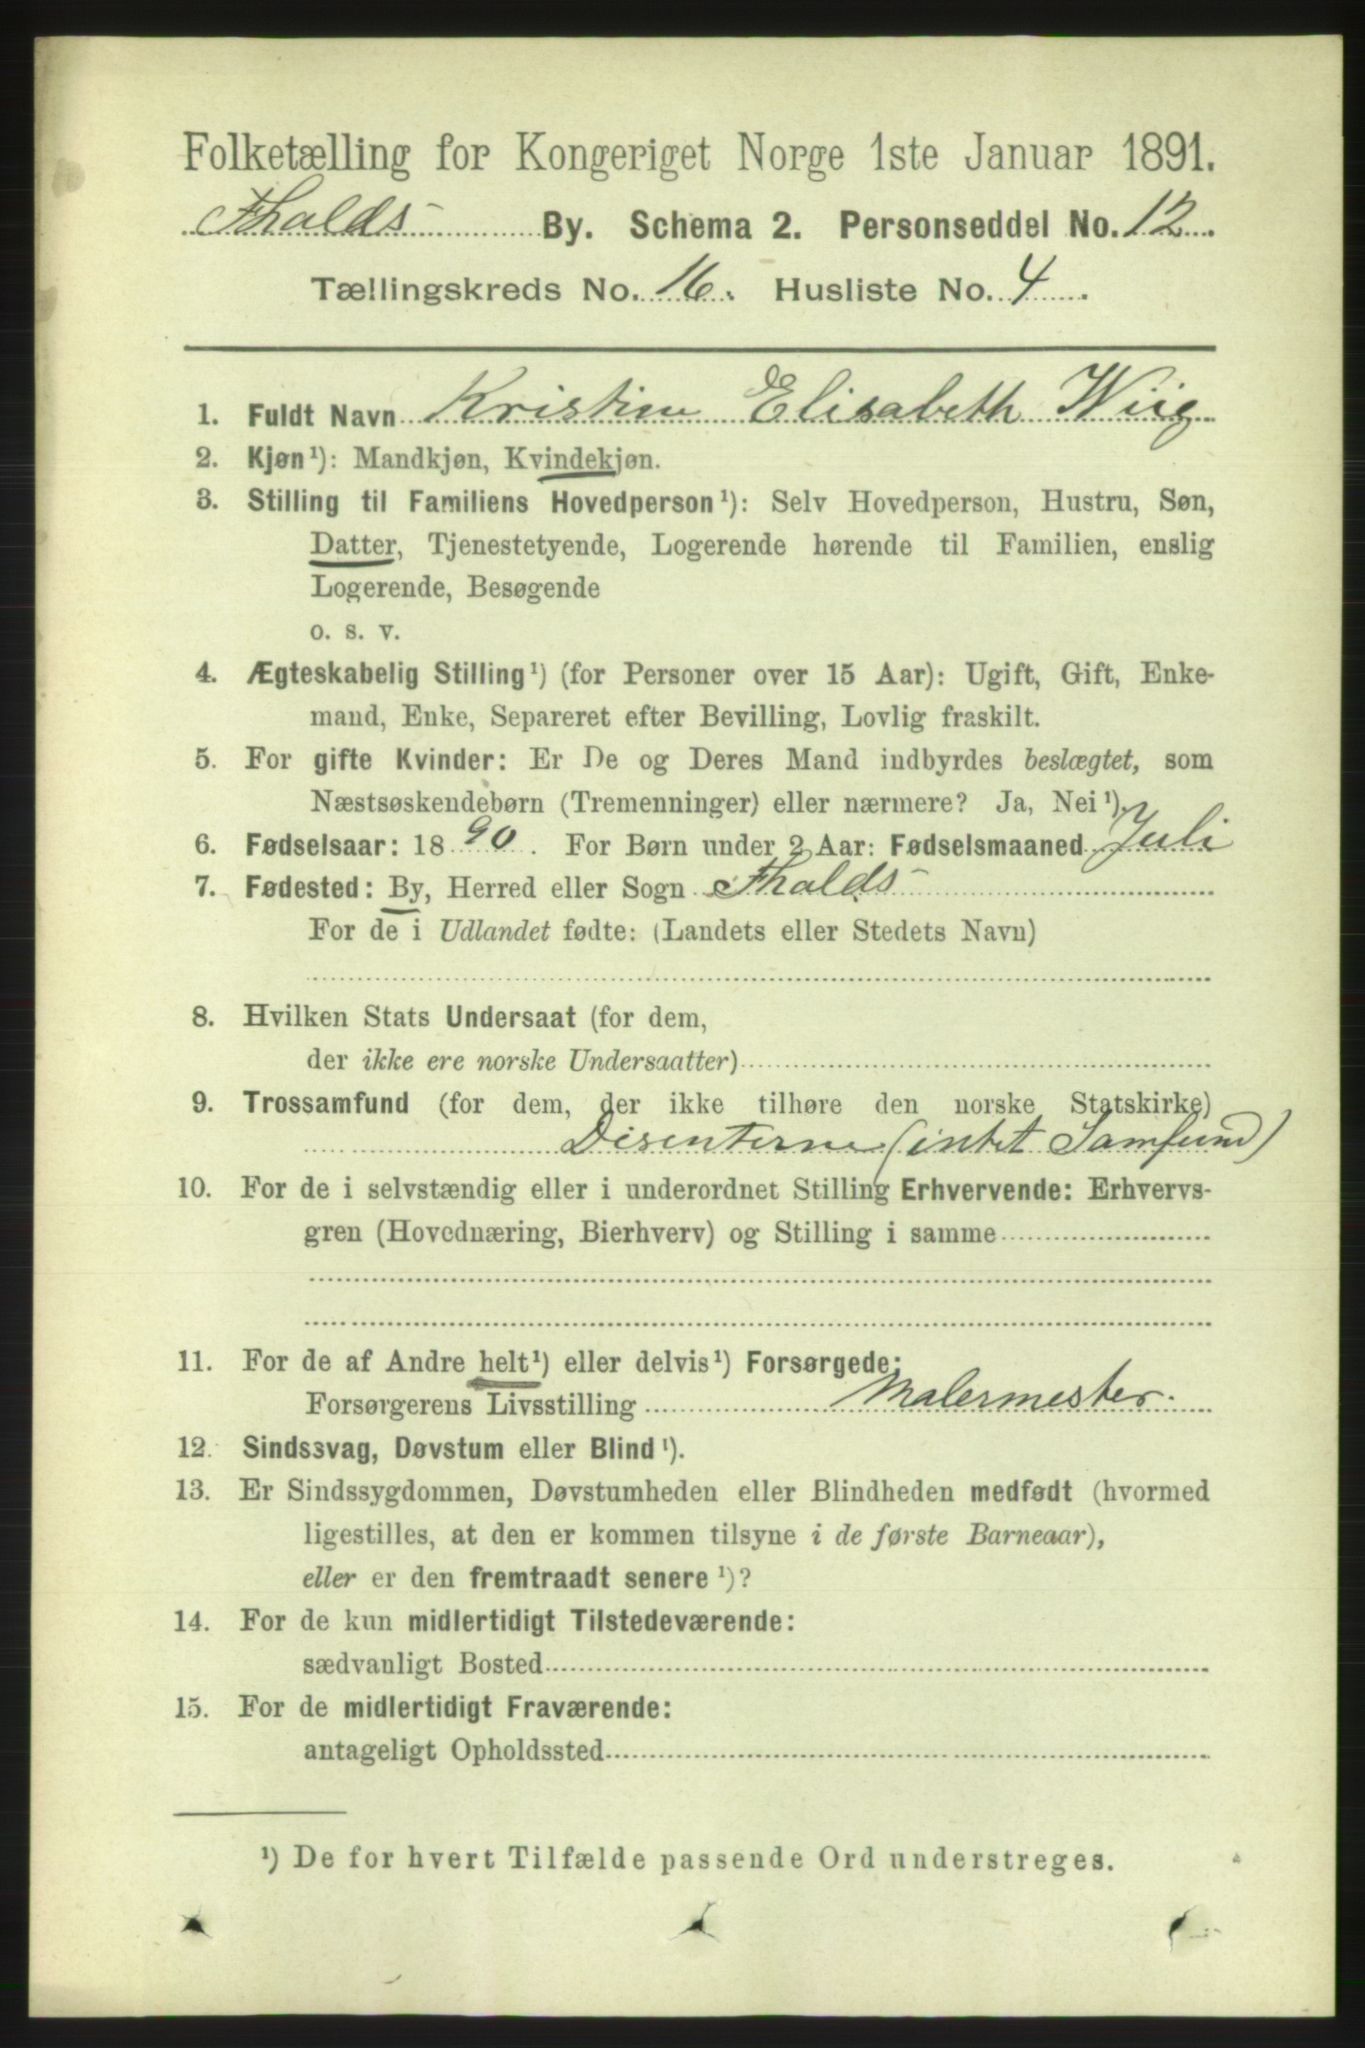 Folketælling for Kongeriget Norge 1ste Januar 1891.
Fhalds By. Schema 2. Personseddel No. 12.
Tællingskreds No. 16. Husliste No. 4.
1. Fuldt Navn Kristine Elisabeth Wiig
2. Kjøn¹): Mandkjøn, Kvindekjøn.
3. Stilling til Familiens Hovedperson¹): Selv Hovedperson, Hustru, Søn,
Datter, Tjenestetyende, Logerende hørende til Familien, enslig
Logerende, Besøgende
o. s. v.
4. Ægteskabelig Stilling¹) (for Personer over 15 Aar): Ugift, Gift, Enke-
mand, Enke, Separeret efter Bevilling, Lovlig fraskilt.
5. For gifte Kvinder: Er De og Deres Mand indbyrdes beslægtet, som
Næstsøskendebørn (Tremenninger) eller nærmere? Ja, Nei¹).
6. Fødselsaar: 1890. For Børn under 2 Aar: Fødselsmaaned Juli
7. Fødested: By, Herred eller Sogn Fhalds
For de i Udlandet fødte: (Landets eller Stedets Navn)
8. Hvilken Stats Undersaat (for dem,
der ikke ere norske Undersaatter)
9. Trossamfund (for dem, der ikke tilhøre den norske Statskirke)
Disenterne (intet Samfund)
10. For de i selvstændig eller i underordnet Stilling Erhvervende: Erhvervs-
gren (Hovednæring, Bierhverv) og Stilling i samme
11. For de af Andre helt¹) eller delvis¹) Forsørgede:
Forsørgerens Livsstilling Malermester.
12. Sindssvag, Døvstum eller Blind¹).
13. Er Sindssygdommen, Døvstumheden eller Blindheden medfødt (hvormed
ligestilles, at den er kommen tilsyne i de første Barneaar),
eller er den fremtraadt senere¹)?
14. For de kun midlertidigt Tilstedeværende:
sædvanligt Bosted
15. For de midlertidigt Fraværende:
antageligt Opholdssted
¹) De for hvert Tilfælde passende Ord understreges.